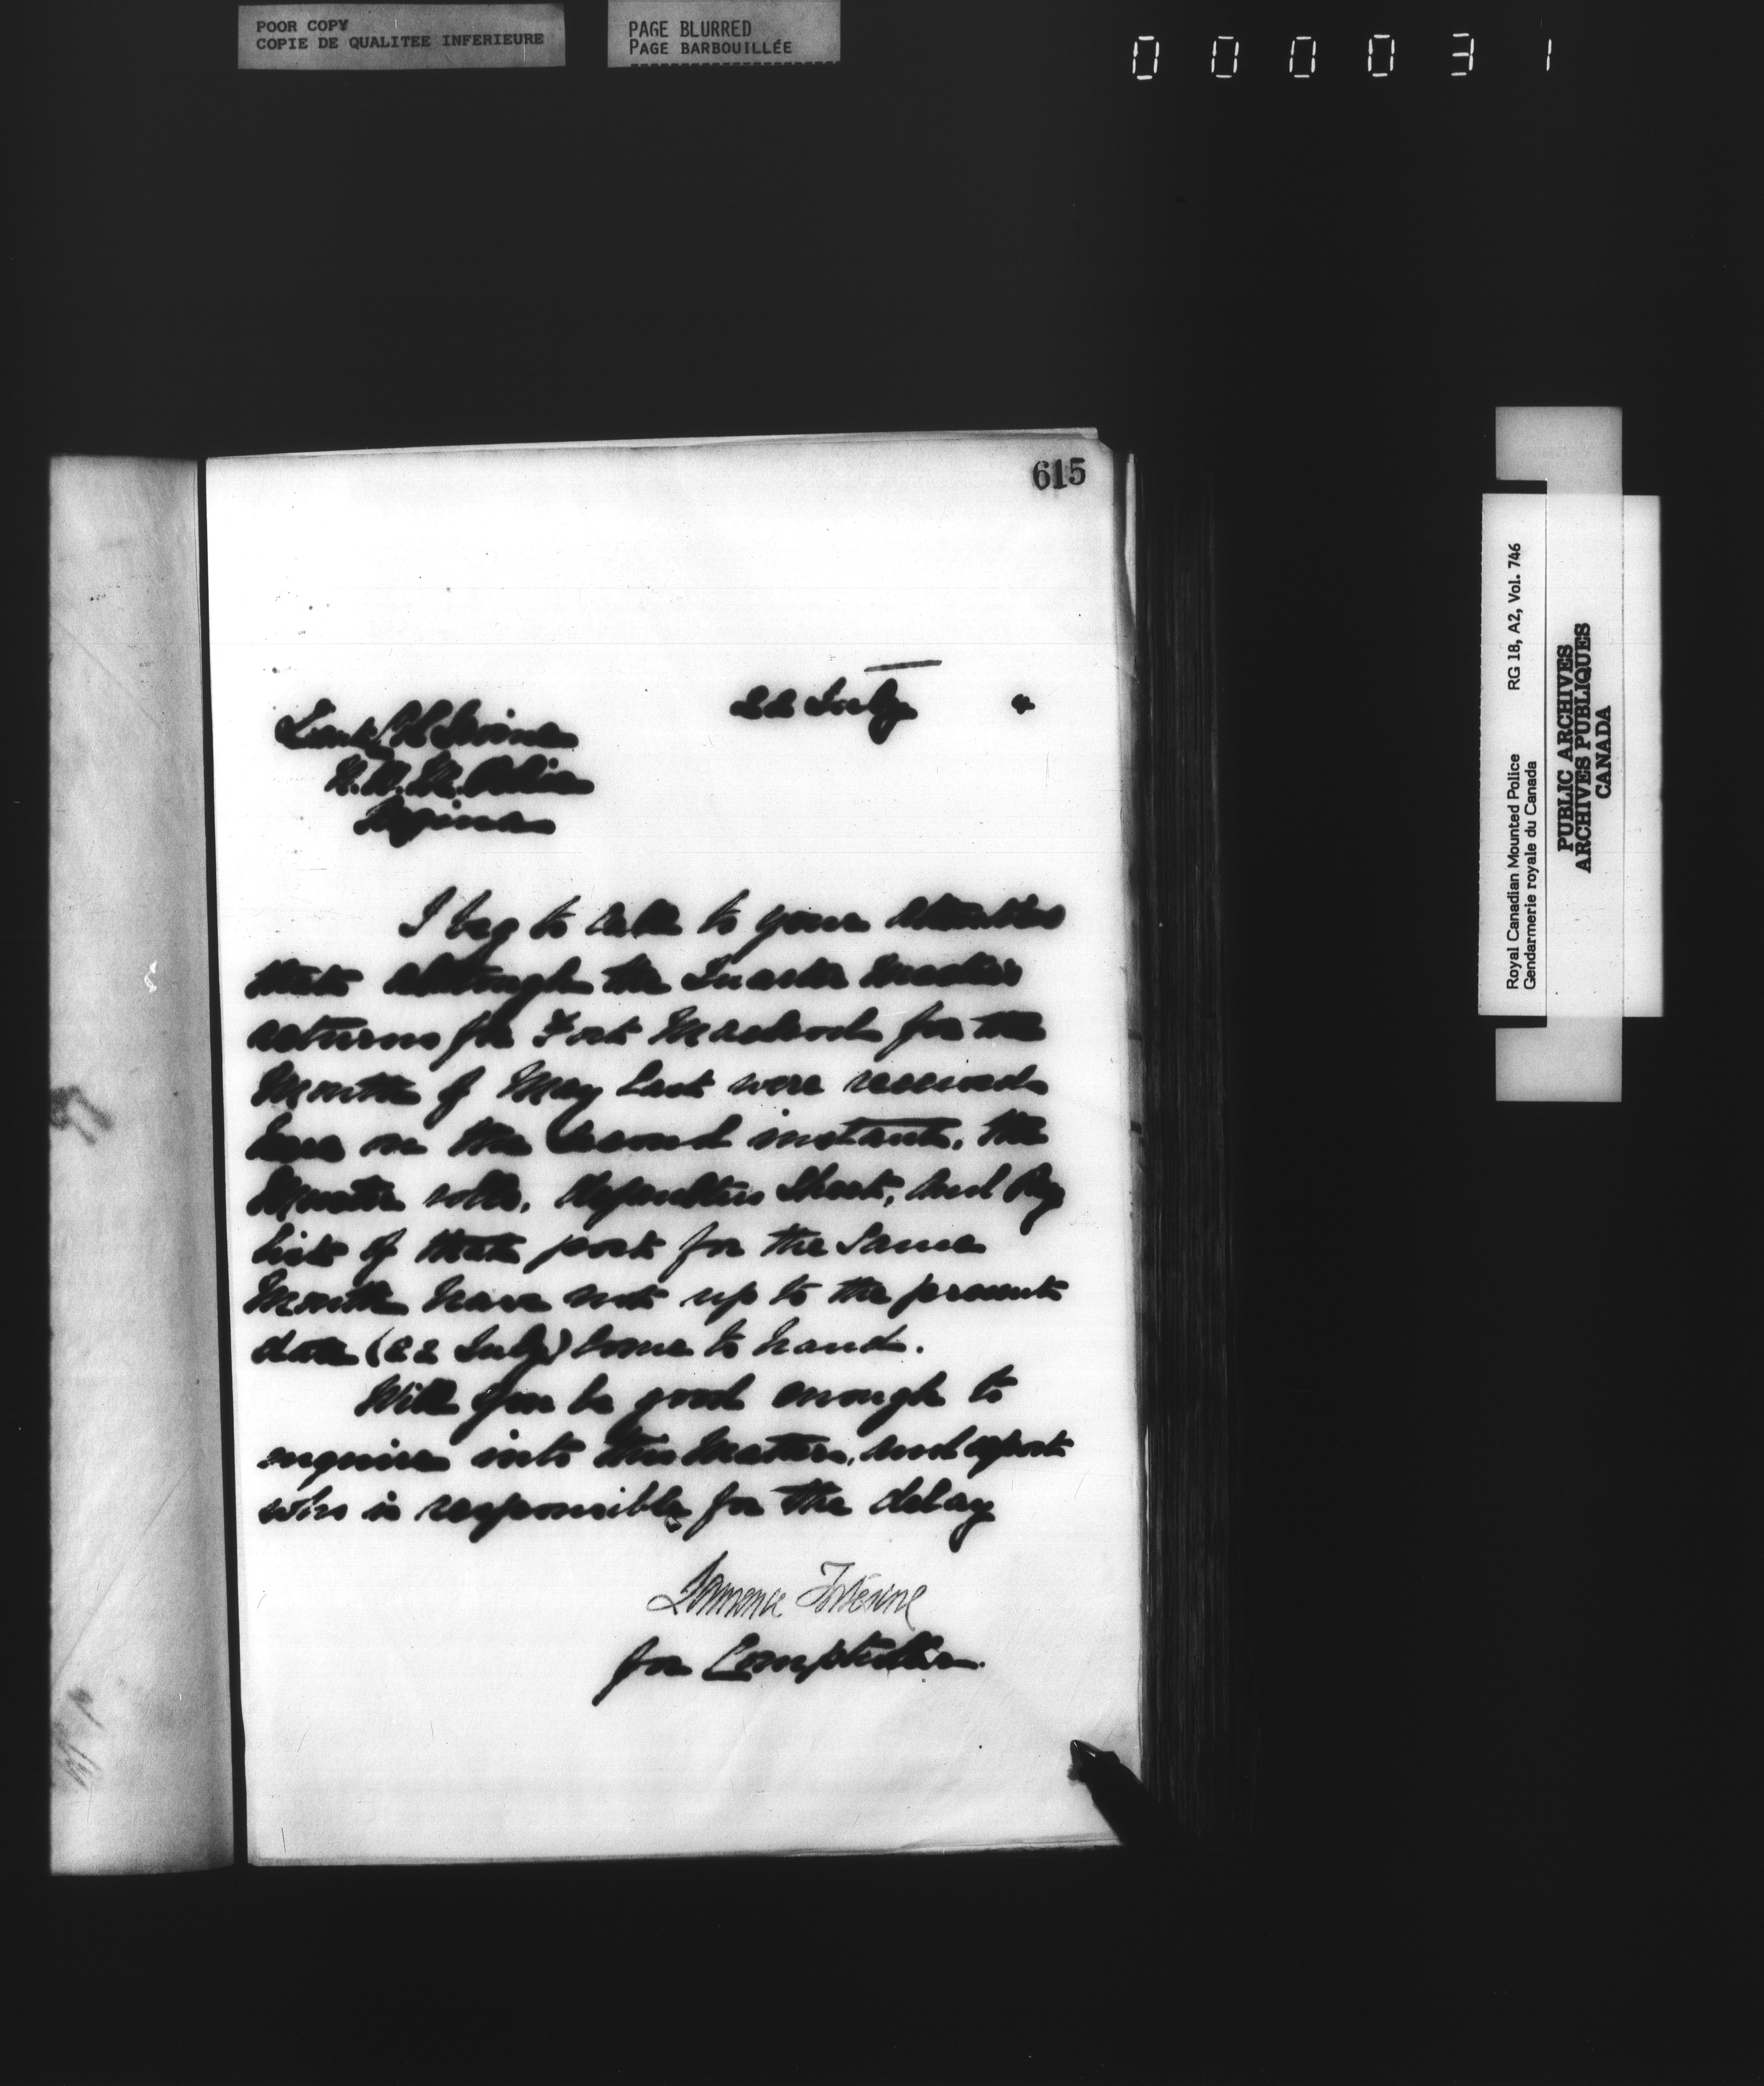 POOR COPY
COPIE DE QUALITEE INFERIEURE
PAGE BLURRED
PAGE BARBOUILLÉE
000031
615
22 July 4
Lieut. Col Irvine
N. W. M. Police
Regina
I beg to call to your attention
that although the Quarter Masters
returns for Fort Macleod for the
Month of May last were received
here on the second instant, the
Muster rolls, defaulters Sheet, and Pay
List of that post for the same
Month have not up to the present
date (22 July) come to hand.
Will you be good enough to
enquire into this matter, and report
who is responsible for the delay
for Comptroller.
Royal Canadian Mounted Police RG 18, A2, Vol. 746
Gendarmerie royale du Canada
PUBLIC ARCHIVES
ARCHIVES PUBLIQUES
CANADA